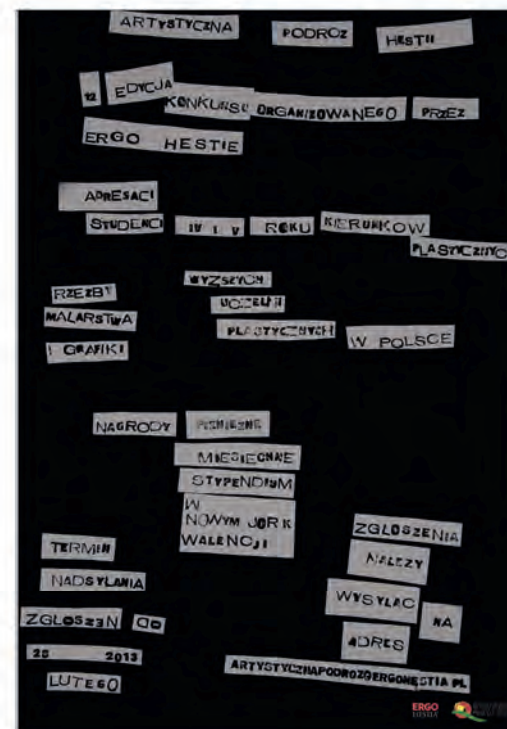 ARTYSTYCZNA PODROZ HESTII
12 EDYCJA KONKURSU ORGANIZOWANEGO PRZEZ
ERGO HESTIE
ADRESACI
STUDENCI IV I V ROKU KIERUNKOW
PLASTYCZNYC
RZEZBY
MALARSTWA
I GRAFIKI
WYZSZYCH
UCZELNI
PLASTYCZNYCH W POLSCE
NAGRODY PIENIEZNE
MIESIECZNE
STYPENDIUM
W
NOWYM JORK
WALENCJI
TERMIN
NADSYLANIA
ZGLOSZEN DO
28 2013
LUTEGO
ZGLOSZENIA
NALEZY
WYSYLAC NA
ADRES
ARTYSTYCZNAPODROZ@ERGOHESTIA.PL
ERGO
HESTIA